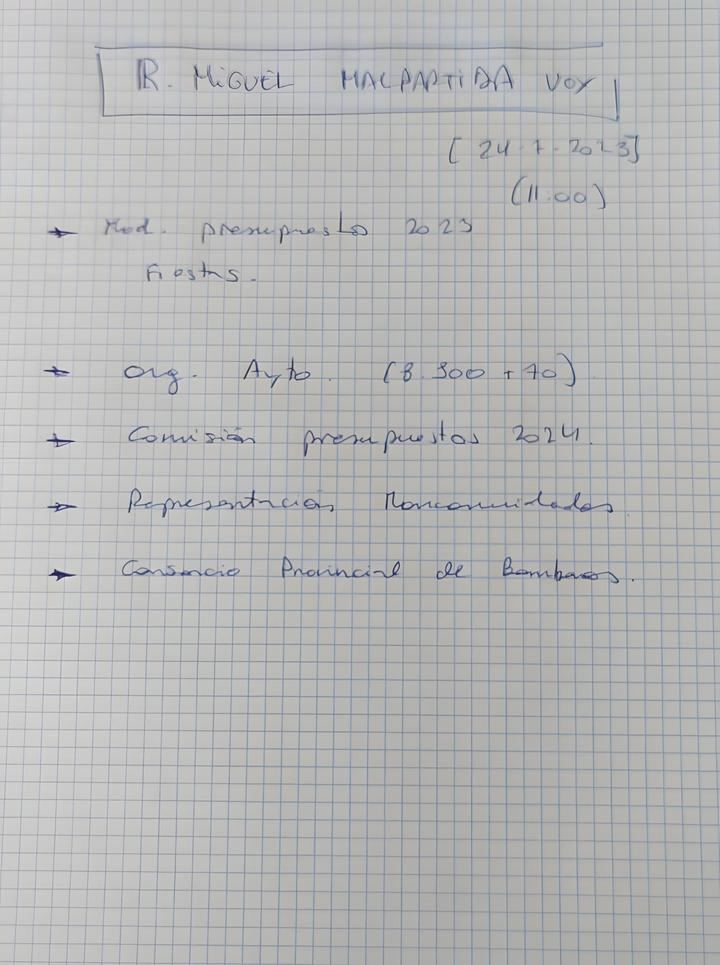 R. MIGUEL MALPARTIDA VOX
[24-7-2023]
(11:00)
→ Mod. presupuesto 2023
Fiestas.
→ Org. Ayto. (8.300 + 70)
→ Comisión presupuestos 2024.
→ Representación Mancomunidades.
→ Consorcio Provincial de Bomberos.